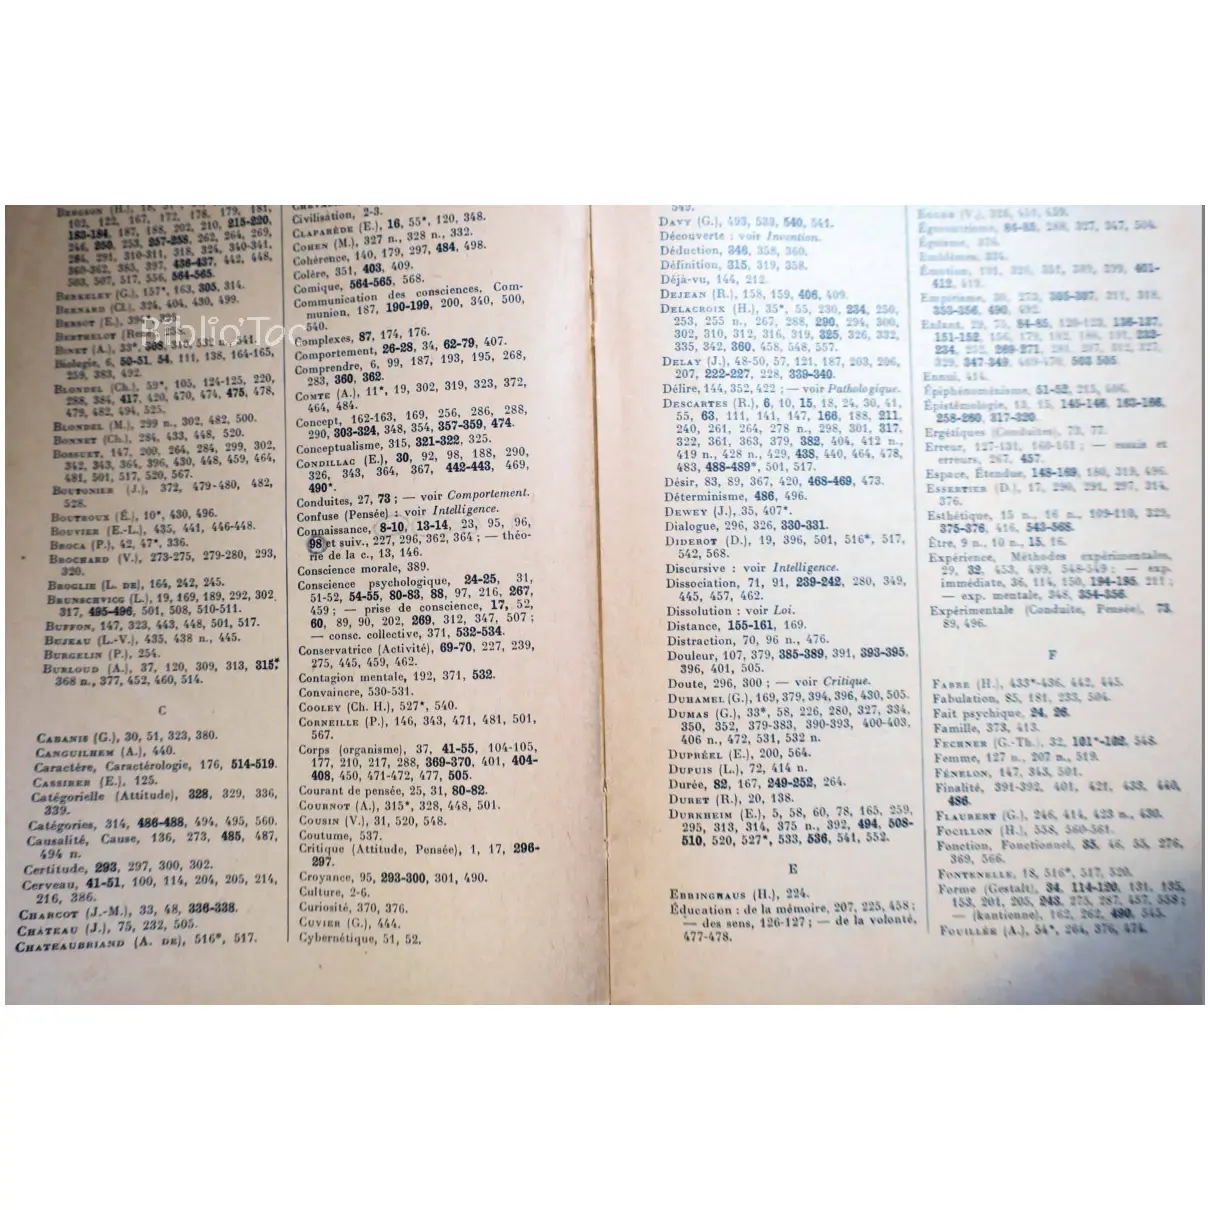 102, 122, 167, 172, 178, 179, 181,
183-184, 187, 188, 202, 210, 215-220,
246, 250, 253, 257-258, 262, 264, 269,
284, 291, 310-311, 318, 325, 340-341,
360-362, 385, 397, 436-437, 442, 448,
503, 507, 517, 556, 564-565.
BERKELEY (G.), 157*, 163, 305, 314.
BERNARD (Cl.), 324, 404, 430, 499.
BERSOT (E.),
Biblio'Toc
BERTHELOT (René)
BINET (A.), 33*, 541.
Biologie, 6, 50-51, 54, 111, 138, 164-165,
259, 383, 492.
BLONDEL (Ch.), 59*, 105, 124-125, 220,
288, 384, 417, 420, 470, 474, 475, 478,
479, 482, 494, 525.
BLONDEL (M.), 299 n., 302, 482, 500.
BONNET (Ch.), 284, 433, 448, 520.
BOSSUET, 147, 200, 264, 284, 299, 302,
342, 343, 364, 396, 430, 448, 459, 464,
481, 501, 517, 520, 567.
BOUTONIER (J.), 372, 479-480, 482,
528.
BOUTROUX (É.), 10*, 430, 496.
BOUVIER (E.-L.), 435, 441, 446-448.
BROCA (P.), 42, 47*, 336.
BROCHARD (V.), 273-275, 279-280, 293,
320.
BROGLIE (L. DE), 164, 242, 245.
BRUNSCHVICG (L.), 19, 169, 189, 292, 302,
317, 495-496, 501, 508, 510-511.
BUFFON, 147, 323, 443, 448, 501, 517.
BUJEAU (L.-V.), 435, 438 n., 445.
BURGELIN (P.), 254.
BURLOUD (A.), 37, 120, 309, 313, 315*,
368 n., 377, 452, 460, 514.
C
CABANIS (G.), 30, 51, 323, 380.
CANGUILHEM (A.), 440.
Caractère, Caractérologie, 176, 514-519.
CASSIRER (E.), 125.
Catégorielle (Attitude), 328, 329, 336,
339.
Catégories, 314, 486-488, 494, 495, 560.
Causalité, Cause, 136, 273, 485, 487,
494 n.
Certitude, 293, 297, 300, 302.
Cerveau, 41-51, 100, 114, 204, 205, 214,
216, 386.
CHARCOT (J.-M.), 33, 48, 336-338.
CHÂTEAU (J.), 75, 232, 505.
CHATEAUBRIAND (A. DE), 516*, 517.
Civilisation, 2-3.
CLAPARÈDE (E.), 16, 55*, 120, 348.
COHEN (M.), 327 n., 328 n., 332.
Cohérence, 140, 179, 297, 484, 498.
Colère, 351, 403, 409.
Comique, 564-565, 568.
Communication des consciences, Com-
munion, 187, 190-199, 200, 340, 500,
540.
Complexes, 87, 174, 176.
Comportement, 26-28, 34, 62-79, 407.
Comprendre, 6, 99, 187, 193, 195, 268,
283, 360, 362.
COMTE (A.), 11*, 19, 302, 319, 323, 372,
464, 484.
Concept, 162-163, 169, 256, 286, 288,
290, 303-324, 348, 354, 357-359, 474.
Conceptualisme, 315, 321-322, 325.
CONDILLAC (E.), 30, 92, 98, 188, 290,
326, 343, 364, 367, 442-443, 469,
490*.
Conduites, 27, 73 ; — voir Comportement.
Confuse (Pensée) : voir Intelligence.
Connaissance, 8-10, 13-14, 23, 95, 96,
98 et suiv., 227, 296, 362, 364 ; — théo-
rie de la c., 13, 146.
Conscience morale, 389.
Conscience psychologique, 24-25, 31,
51-52, 54-55, 80-83, 88, 97, 216, 267,
459 ; — prise de conscience, 17, 52,
60, 89, 90, 202, 269, 312, 347, 507 ;
— consc. collective, 371, 532-534.
Conservatrice (Activité), 69-70, 227, 239,
275, 445, 459, 462.
Contagion mentale, 192, 371, 532.
Convaincre, 530-531.
COOLEY (Ch. H.), 527*, 540.
CORNEILLE (P.), 146, 343, 471, 481, 501,
567.
Corps (organisme), 37, 41-55, 104-105,
177, 210, 217, 288, 369-370, 401, 404-
408, 450, 471-472, 477, 505.
Courant de pensée, 25, 31, 80-82.
COURNOT (A.), 315*, 328, 448, 501.
COUSIN (V.), 31, 520, 548.
Coutume, 537.
Critique (Attitude, Pensée), 1, 17, 296-
297.
Croyance, 95, 293-300, 301, 490.
Culture, 2-6.
Curiosité, 370, 376.
CUVIER (G.), 444.
Cybernétique, 51, 52.
549.
DAVY (G.), 493, 533, 540, 541.
Découverte : voir Invention.
Déduction, 346, 358, 360.
Définition, 315, 319, 358.
Déjà-vu, 144, 212.
DEJEAN (R.), 158, 159, 406, 409.
DELACROIX (H.), 35*, 55, 230, 234, 250,
253, 255 n., 267, 288, 290, 294, 300,
302, 310, 312, 316, 319, 325, 326, 332,
335, 342, 360, 458, 548, 557.
DELAY (J.), 48-50, 57, 121, 187, 203, 206,
207, 222-227, 228, 339-340.
Délire, 144, 352, 422 ; — voir Pathologique.
DESCARTES (R.), 6, 10, 15, 18, 24, 30, 41,
55, 63, 111, 141, 147, 166, 188, 211,
240, 261, 264, 278 n., 298, 301, 317,
322, 361, 363, 379, 382, 404, 412 n.,
419 n., 428 n., 429, 438, 440, 464, 478,
483, 488-489*, 501, 517.
Désir, 83, 89, 367, 420, 468-469, 473.
Déterminisme, 486, 496.
DEWEY (J.), 35, 407*.
Dialogue, 296, 326, 330-331.
DIDEROT (D.), 19, 396, 501, 516*, 517,
542, 568.
Discursive : voir Intelligence.
Dissociation, 71, 91, 239-242, 280, 349,
445, 457, 462.
Dissolution : voir Loi.
Distance, 155-161, 169.
Distraction, 70, 96 n., 476.
Douleur, 107, 379, 385-389, 391, 393-395,
396, 401, 505.
Doute, 296, 300 ; — voir Critique.
DUHAMEL (G.), 169, 379, 394, 396, 430, 505.
DUMAS (G.), 33*, 58, 226, 280, 327, 334,
350, 352, 379-383, 390-393, 400-403,
406 n., 472, 531, 532 n.
DUPRÉEL (E.), 200, 564.
DUPUIS (L.), 72, 414 n.
Durée, 82, 167, 249-252, 264.
DURET (R.), 20, 138.
DURKHEIM (E.), 5, 58, 60, 78, 165, 259,
295, 313, 314, 375 n., 392, 494, 508-
510, 520, 527*, 533, 536, 541, 552.
E
EBBINGHAUS (H.), 224.
Éducation : de la mémoire, 207, 225, 458 ;
— des sens, 126-127 ; — de la volonté,
477-478.
Égocentrisme, 84-85, 288, 327, 347, 504.
Égoïsme, 376.
Emblèmes, 334.
Émotion, 401-
412, 419.
Enfant,
Ennui, 414.
Épiphénoménisme, 51-52, 215, 406.
Épistémologie, 13, 15, 145-146, 163-166,
258-260, 317-320.
Ergétiques (Conduites), 73, 77.
Erreur, 127-131, 160-161 ; — essais et
erreurs, 267, 457.
Espace, Étendue, 148-169, 180, 319, 496.
ESSERTIER (D.), 17, 290, 291, 297, 314,
376.
Esthétique, 15 n., 16 n., 109-110, 329,
375-376, 416, 543-568.
Être, 9 n., 10 n., 15, 16.
Expérience, Méthodes expérimentales,
29, 32, 453, 499, 548-549 ; — exp.
immédiate, 36, 114, 150, 194-195, 211 ;
— exp. mentale, 348, 354-356.
Expérimentale (Conduite, Pensée), 73,
89, 496.
F
FABRE (H.), 433*-436, 442, 445.
Fabulation, 85, 181, 233, 504.
Fait psychique, 24, 26.
Famille, 373, 413.
FECHNER (G.-Th.), 32, 101*-102, 548.
Femme, 127 n., 207 n., 519.
FÉNELON, 147, 343, 501.
Finalité, 391-392, 401, 421, 433, 440,
486.
FLAUBERT (G.), 246, 414, 423 n., 430.
FOCILLON (H.), 558, 560-561.
Fonction, Fonctionnel, 35, 46, 55, 276,
369, 566.
FONTENELLE, 18, 516*, 517, 520.
Forme (Gestalt), 34, 114-120, 131, 135,
153, 201, 205, 243, 275, 287, 457, 558 ;
— (kantienne), 162, 262, 490, 545.
FOUILLÉE (A.), 54*, 264, 376, 474.